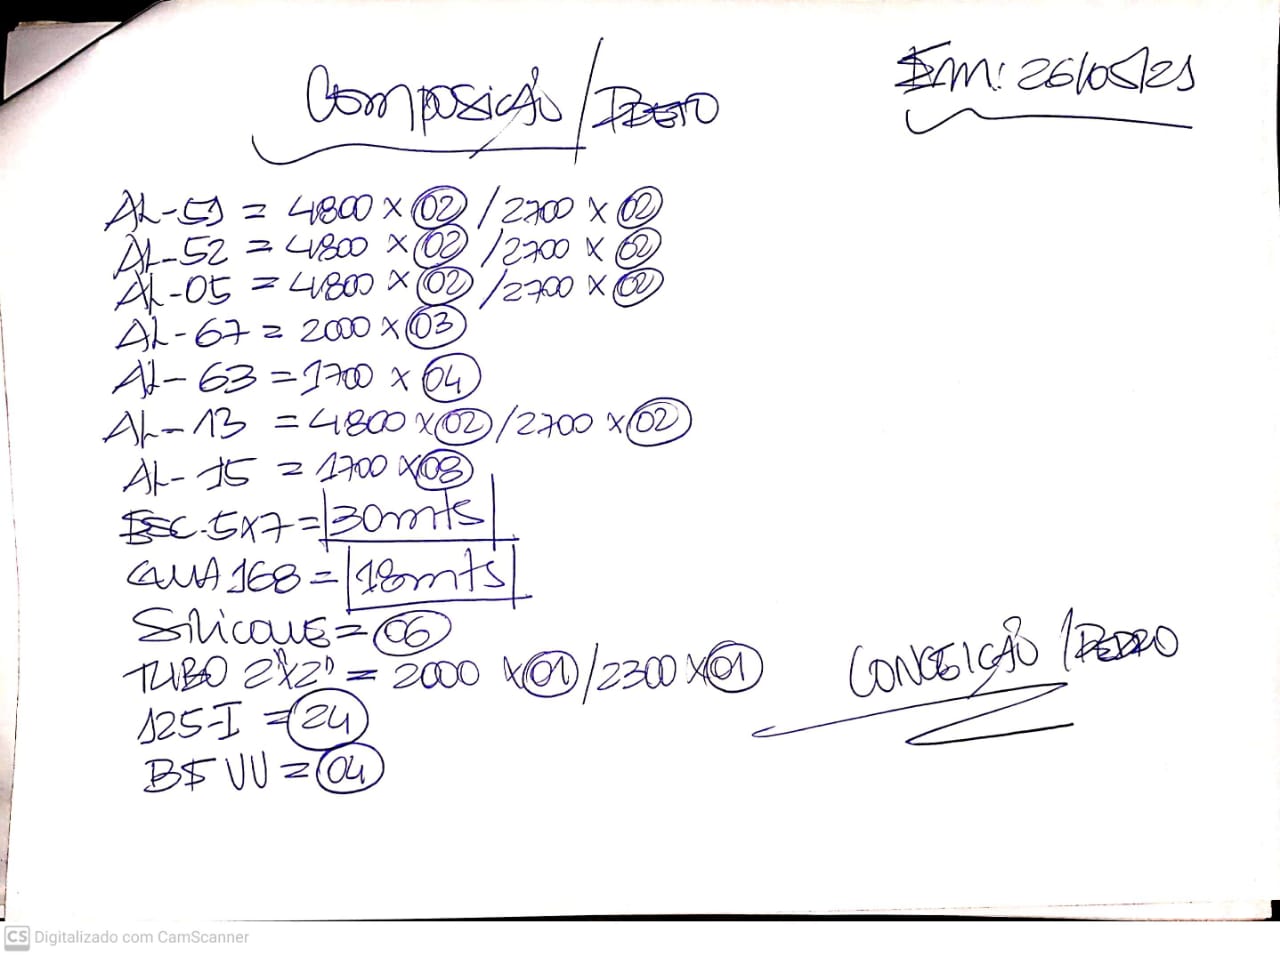 Composição / PRETO
Em: 26/05/21
AL-51 = 4800 x 02 / 2700 x 02
AL-52 = 4800 x 02 / 2700 x 02
AL-05 = 4800 x 02 / 2700 x 02
AL-67 = 2000 x 03
AL-63 = 1700 x 04
AL-13 = 4800 x 02 / 2700 x 02
AL-15 = 1700 x 08
ESC-5x7 = 30mts
GUA 168 = 18mts
Silicone = 06
TUBO 2"x2" = 2000 x 01 / 2300 x 01
CONCEIÇÃO / PEDRO
125-I = 24
= 04
CS Digitalizado com CamScanner